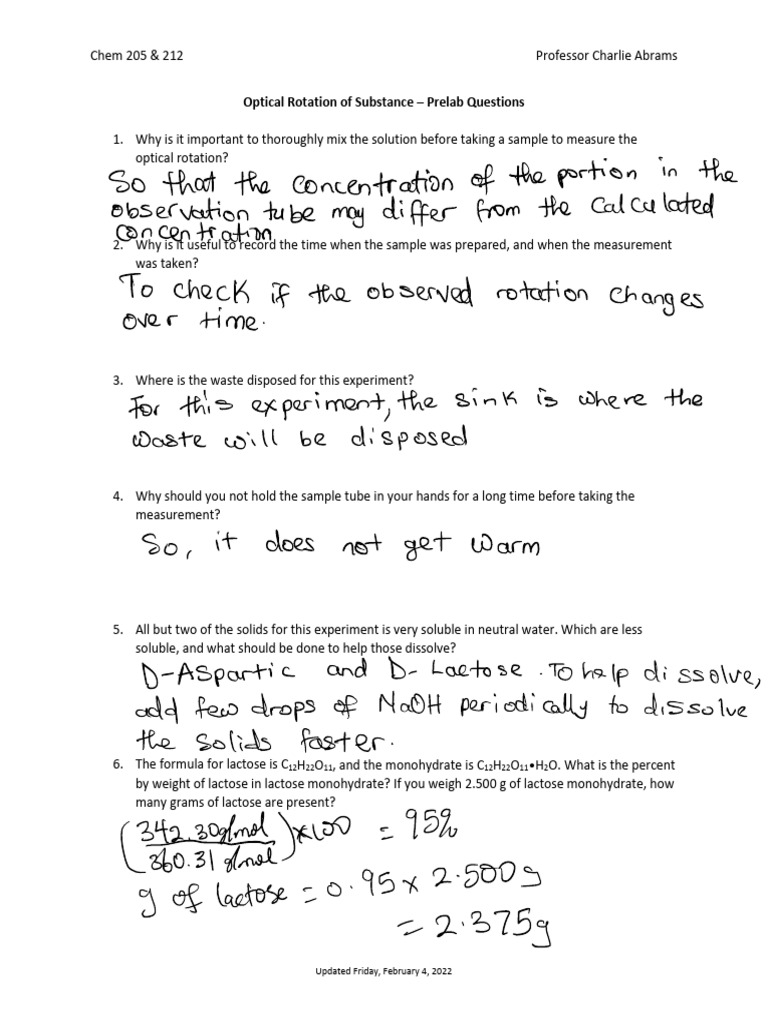 Chem 205 & 212 Professor Charlie Abrams
Optical Rotation of Substance – Prelab Questions
1. Why is it important to thoroughly mix the solution before taking a sample to measure the
optical rotation?
So that the concentration of the portion in the
observation tube may differ from the calculated
concentration
2. Why is it useful to record the time when the sample was prepared, and when the measurement
was taken?
To check if the observed rotation changes
over time.
3. Where is the waste disposed for this experiment?
For this experiment, the sink is where the
waste will be disposed
4. Why should you not hold the sample tube in your hands for a long time before taking the
measurement?
So, it does not get warm
5. All but two of the solids for this experiment is very soluble in neutral water. Which are less
soluble, and what should be done to help those dissolve?
D-Aspartic and D-Lactose. To help dissolve,
add few drops of NaOH periodically to dissolve
the solids faster.
6. The formula for lactose is C₁₂H₂₂O₁₁, and the monohydrate is C₁₂H₂₂O₁₁•H₂O. What is the percent
by weight of lactose in lactose monohydrate? If you weigh 2.500 g of lactose monohydrate, how
many grams of lactose are present?
(342.30g/mol
360.31 g/mol) x100 = 95%
g of lactose = 0.95 x 2.500g
= 2.375g
Updated Friday, February 4, 2022